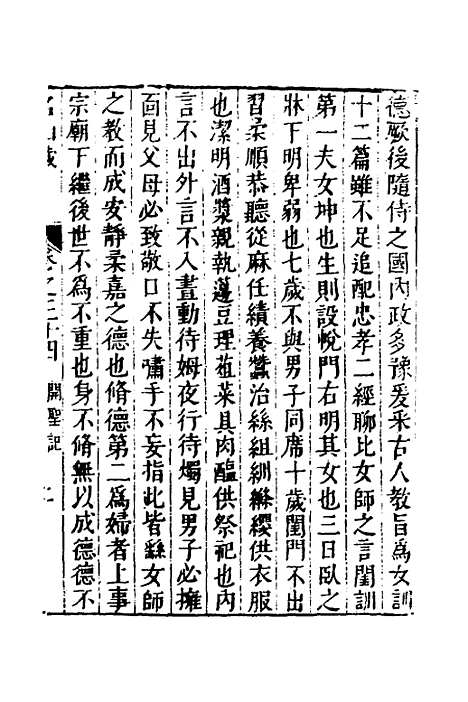 德厥後隨侍之國內政多豫爰采古人教旨爲女訓
十二篇雖不足追配忠孝二經聊比女師之言閨訓
第一夫女坤也生則設帨門右明其女也三日臥之
牀下明卑弱也七歲不與男子同席十歲閨門不出
習柔順恭聽從麻任績養蠶治絲組紃縧纓供衣服
也潔明酒漿親執籩豆理葅菜具肉醢供祭祀也內
言不出外言不入晝動待姆夜行待燭見男子必擁
面見父母必致敬口不失嘯手不妄指此皆繇女師
之教而成安靜柔嘉之德也脩德第二爲婦者上事
宗廟下繼後世不爲不重也身不脩無以成德德不
名山藏 卷之三十四 開聖記